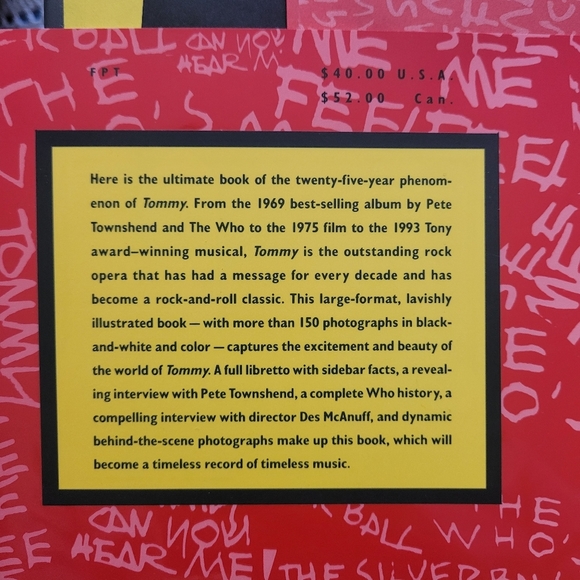 CAN YOU
HEAR M
ME
SEE
ME
FPT
$40.00 U.S.A.
$52.00 Can.
THE
FEEL
WHO'S
Here is the ultimate book of the twenty-five-year phenom-
enon of Tommy. From the 1969 best-selling album by Pete
Townshend and The Who to the 1975 film to the 1993 Tony
award–winning musical, Tommy is the outstanding rock
opera that has had a message for every decade and has
become a rock-and-roll classic. This large-format, lavishly
illustrated book — with more than 150 photographs in black-
and-white and color — captures the excitement and beauty of
the world of Tommy. A full libretto with sidebar facts, a reveal-
ing interview with Pete Townshend, a complete Who history, a
compelling interview with director Des McAnuff, and dynamic
behind-the-scene photographs make up this book, which will
become a timeless record of timeless music.
CAN
YOU
HEAR ME!
BALL
THE
WHO'
THE SILVER